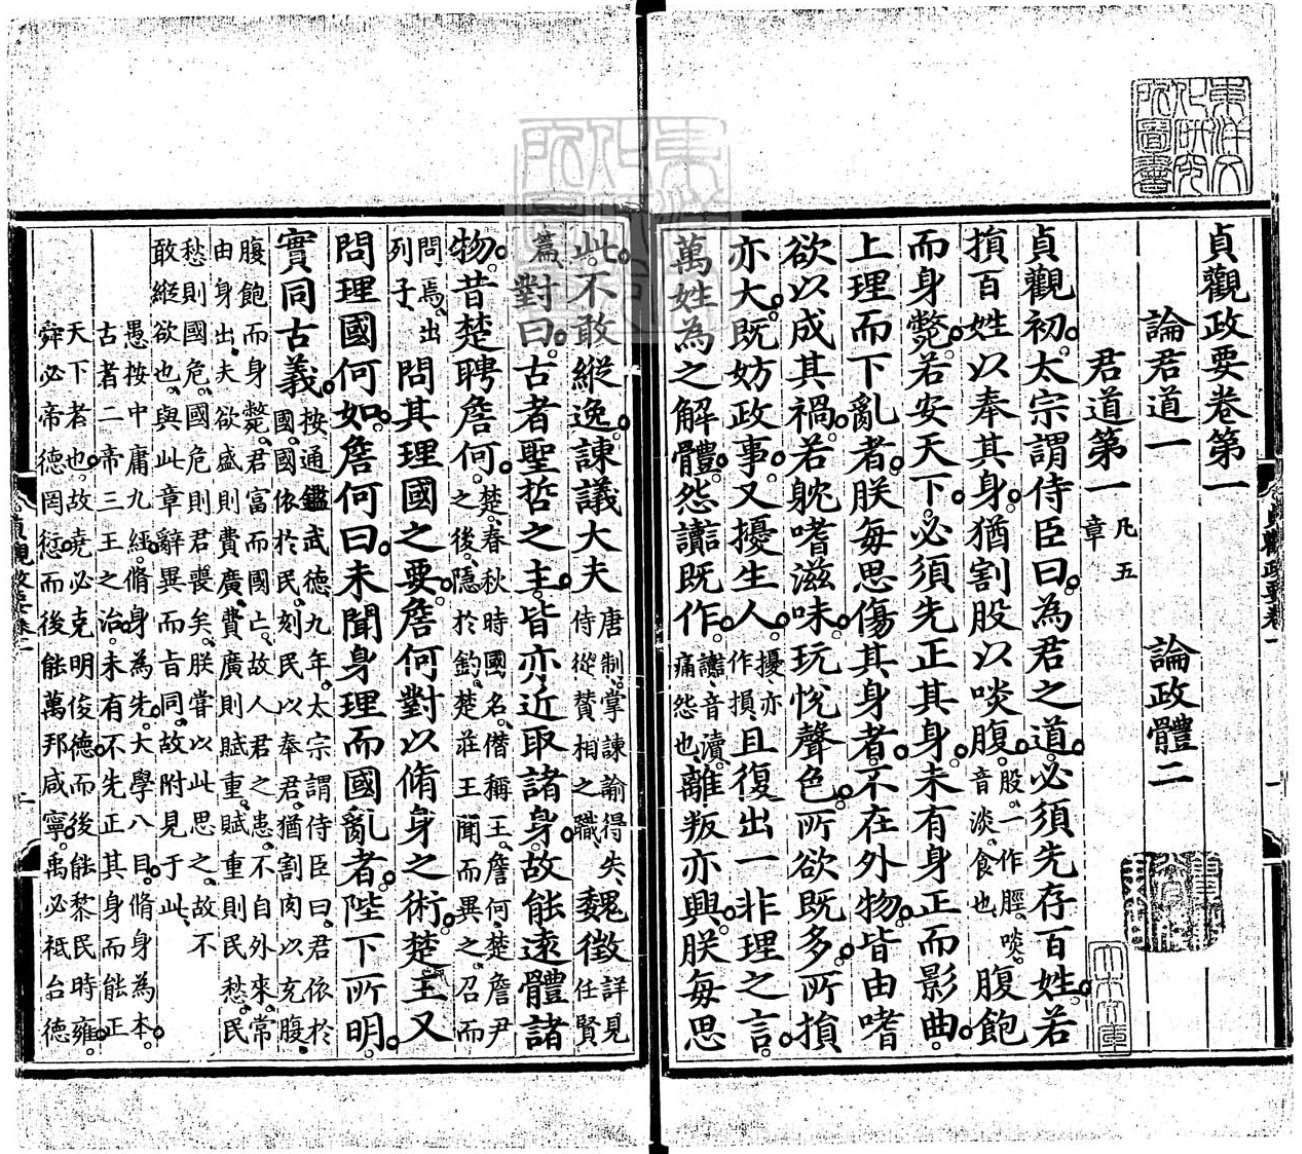 貞觀政要卷第一
論君道一　論政體二
君道第一 凡五章
貞觀初。太宗謂侍臣曰。為君之道。必須先存百姓。若
損百姓以奉其身。猶割股以啖腹。股。一作脛。啖。音淡。食也腹飽
而身斃。若安天下。必須先正其身。未有身正而影曲。
上理而下亂者。朕每思傷其身者。不在外物。皆由嗜
欲以成其禍。若躭嗜滋味。玩悅聲色。所欲既多。所損
亦大。既妨政事。又擾生人。擾亦作損、且復出一非理之言。
萬姓為之解體。怨讟既作。讟、音瀆。痛怨也、離叛亦興。朕每思
此。不敢縱逸。諫議大夫唐制、掌諫諭得失、侍從贊相之職、魏徵詳見任賢
篇、對曰。古者聖哲之主。皆亦近取諸身。故能遠體諸
物。昔楚聘詹何。楚、春秋時國名、僭稱王。詹何、楚詹尹之後、隱於釣。楚莊王聞而異之。召而
問焉、出列子、問其理國之要。詹何對以脩身之術。楚王又
問理國何如。詹何曰。未聞身理而國亂者。陛下所明。
實同古義。按通鑑武德九年。太宗謂侍臣曰。君依於國、國依於民、刻民以奉君。猶割肉以充腹、
腹飽而身斃、君富而國亡。故人君之患。不自外來。常由身出、夫欲盛則費廣、費廣則賦重、賦重則民愁。民
愁則國危。國危則君喪矣。朕嘗以此思之、故不敢縱欲也。與此章辭異而旨同、故附見于此、
愚按中庸九經。脩身為先。大學八目。脩身為本。古者二帝三王之治。未有不先正其身而能正
天下者也。故堯必克明俊德。而後能黎民時雍。舜必帝德罔愆而後能萬邦咸寧。禹必祗台德
貞觀政要卷一
一
東洋文化研究所圖書
大木文庫